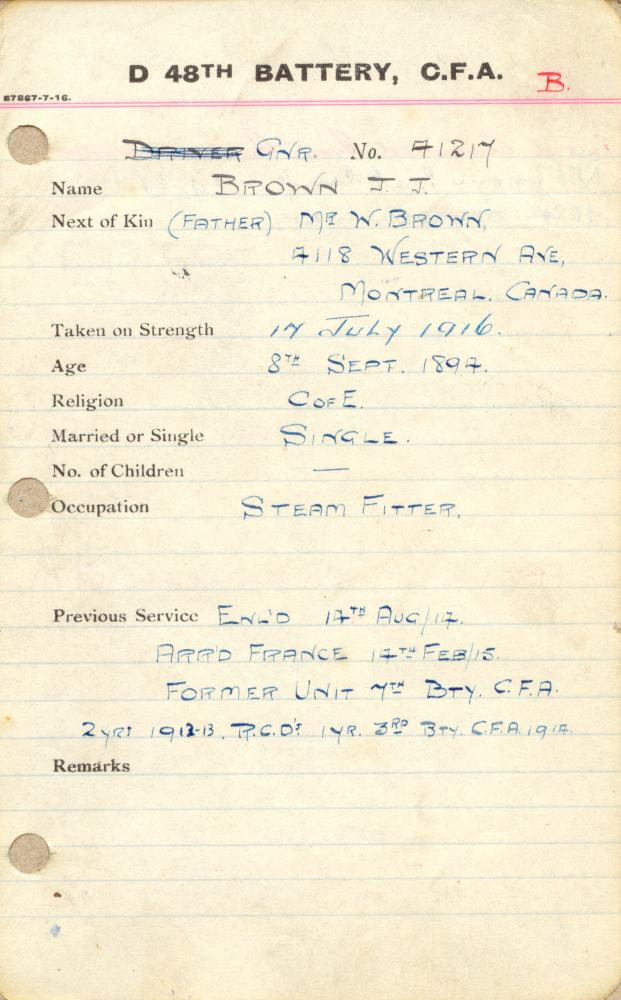 D 48TH BATTERY, C.F.A. B.
87867-7-16.
DRIVER GNR. No. 41217
Name BROWN J. J.
Next of Kin (FATHER) MR W. BROWN,
4118 WESTERN AVE,
MONTREAL. CANADA.
Taken on Strength 17 JULY 1916.
Age 8TH SEPT. 1894.
Religion C OF E.
Married or Single SINGLE.
No. of Children —
Occupation STEAM FITTER.
Previous Service ENL'D 14TH AUG/14.
ARR'D FRANCE 14TH FEB/15.
FORMER UNIT 7TH BTY. C.F.A.
2 YRS 1912-13, R.C.D's 1 YR. 3RD BTY. C.F.A. 1914.
Remarks